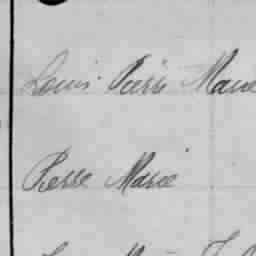 Louis Pierre Marie
Pierre Marie